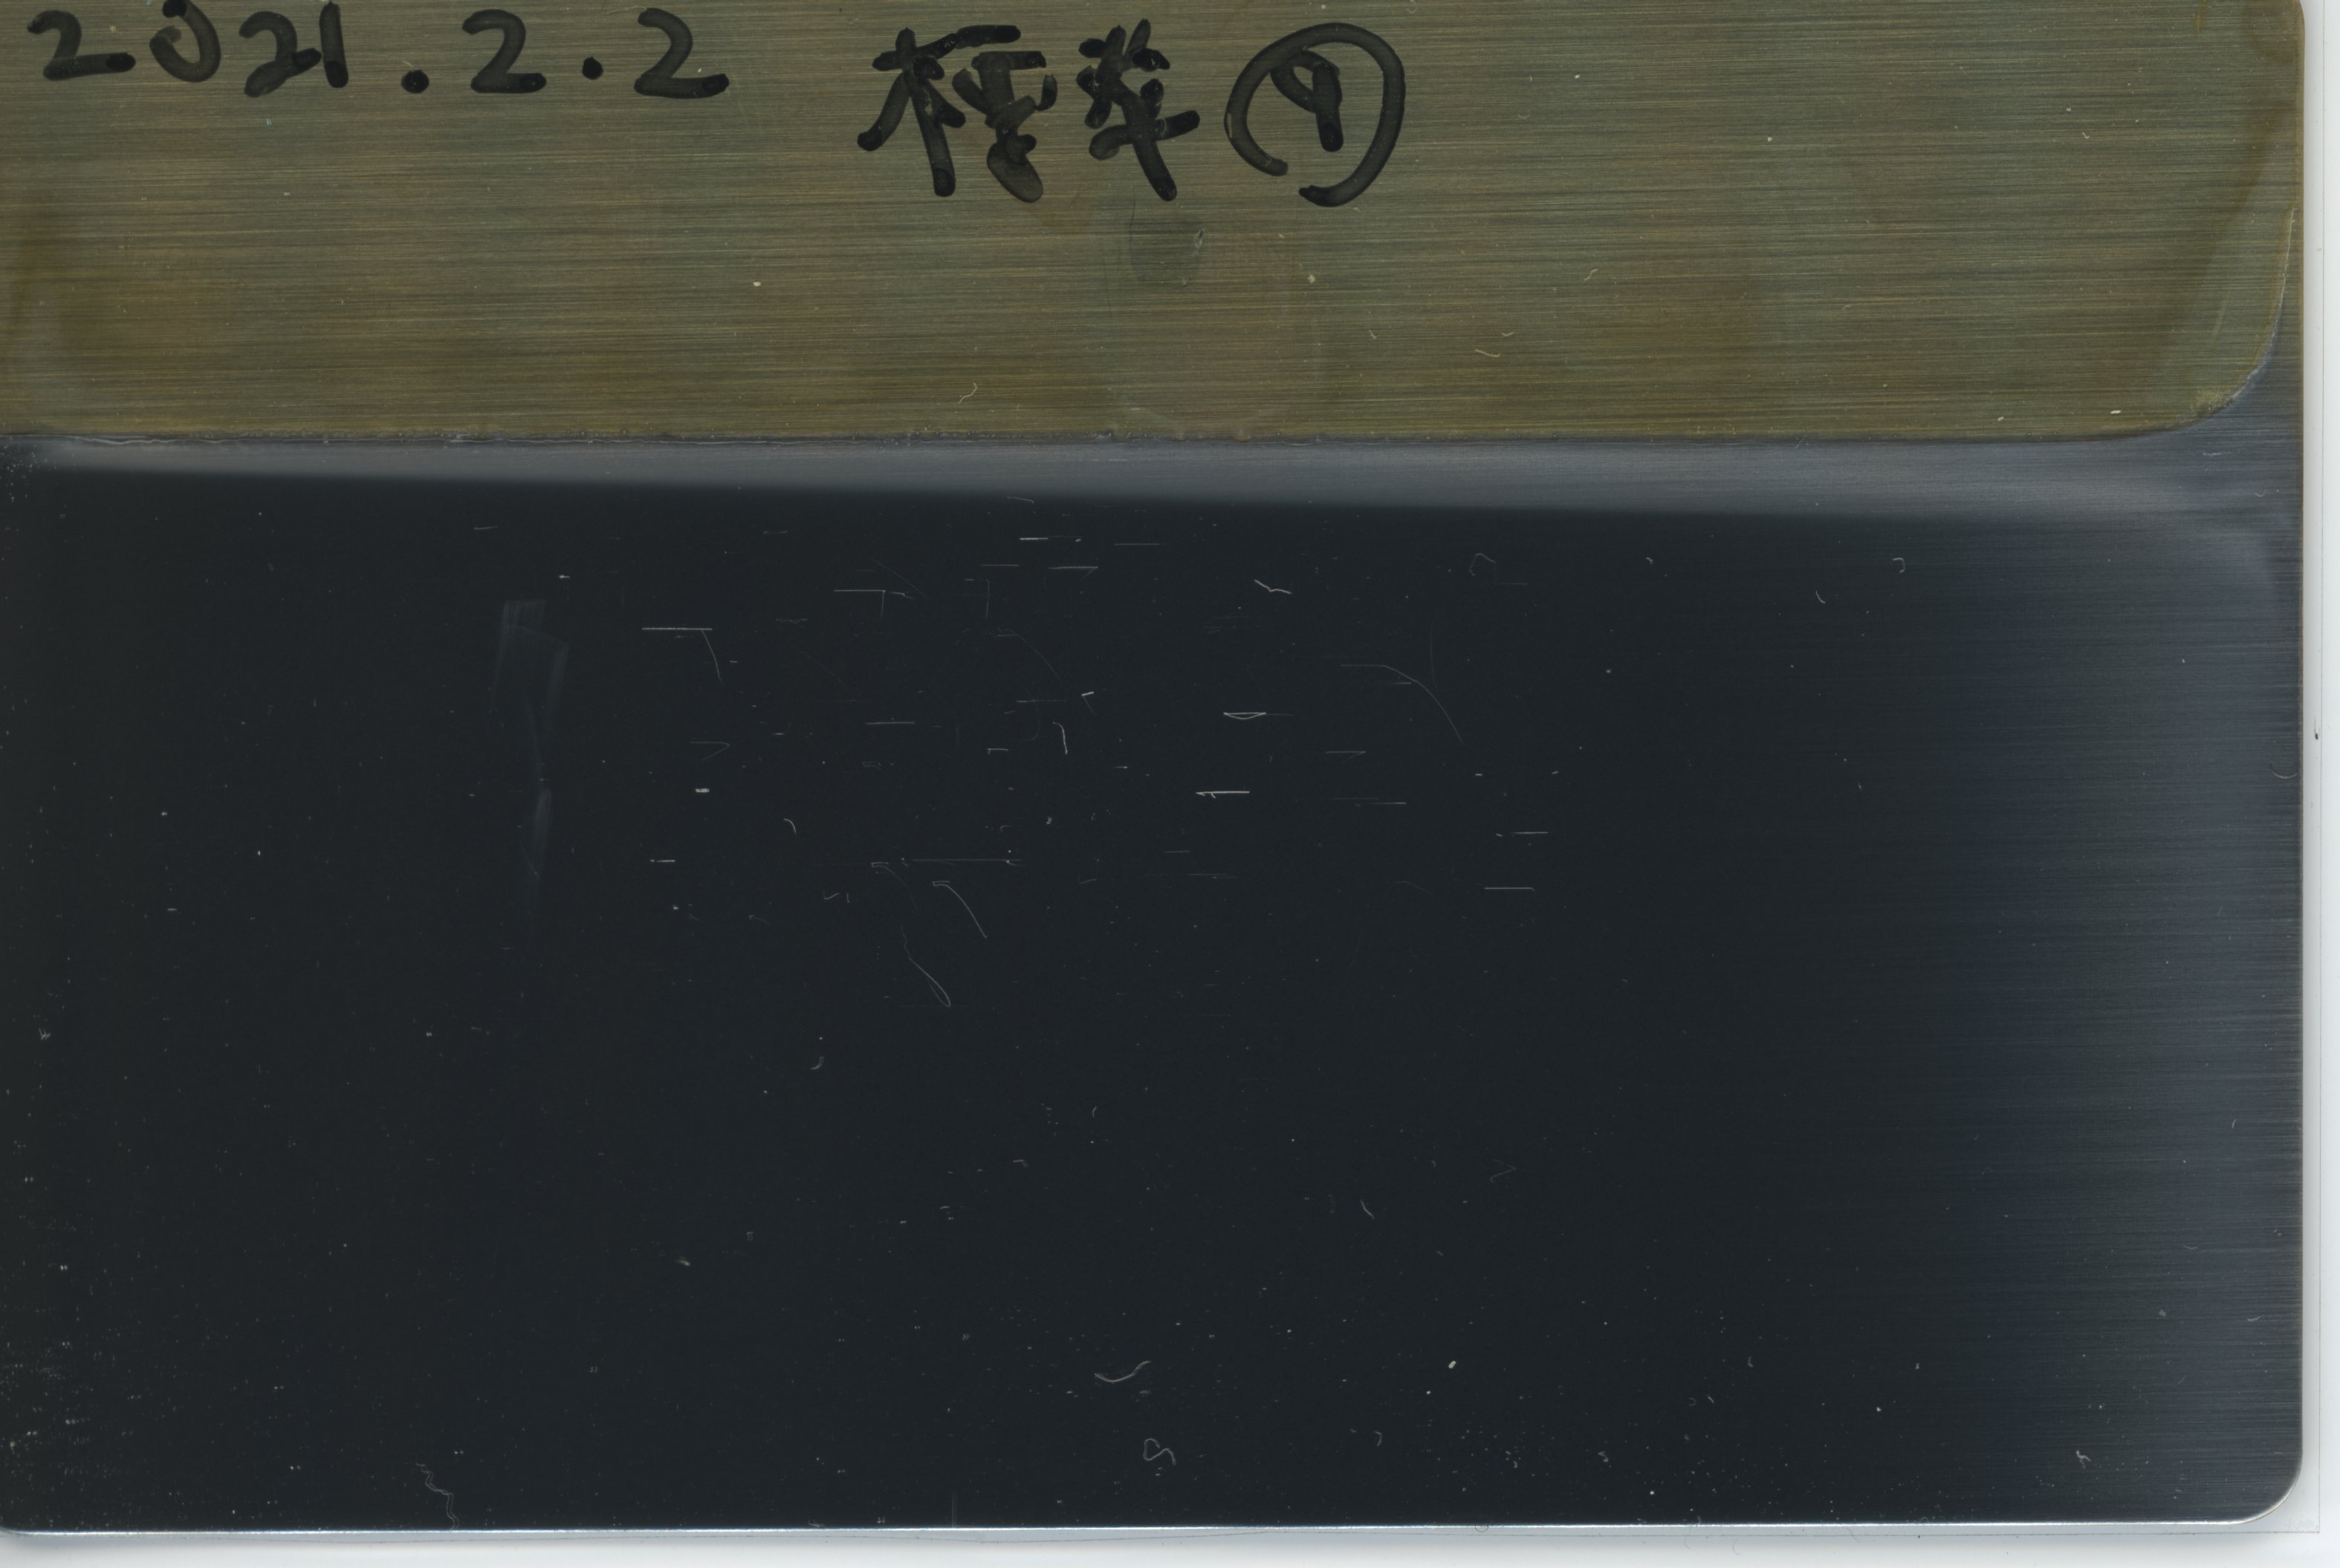 2021.2.2 標準⑨